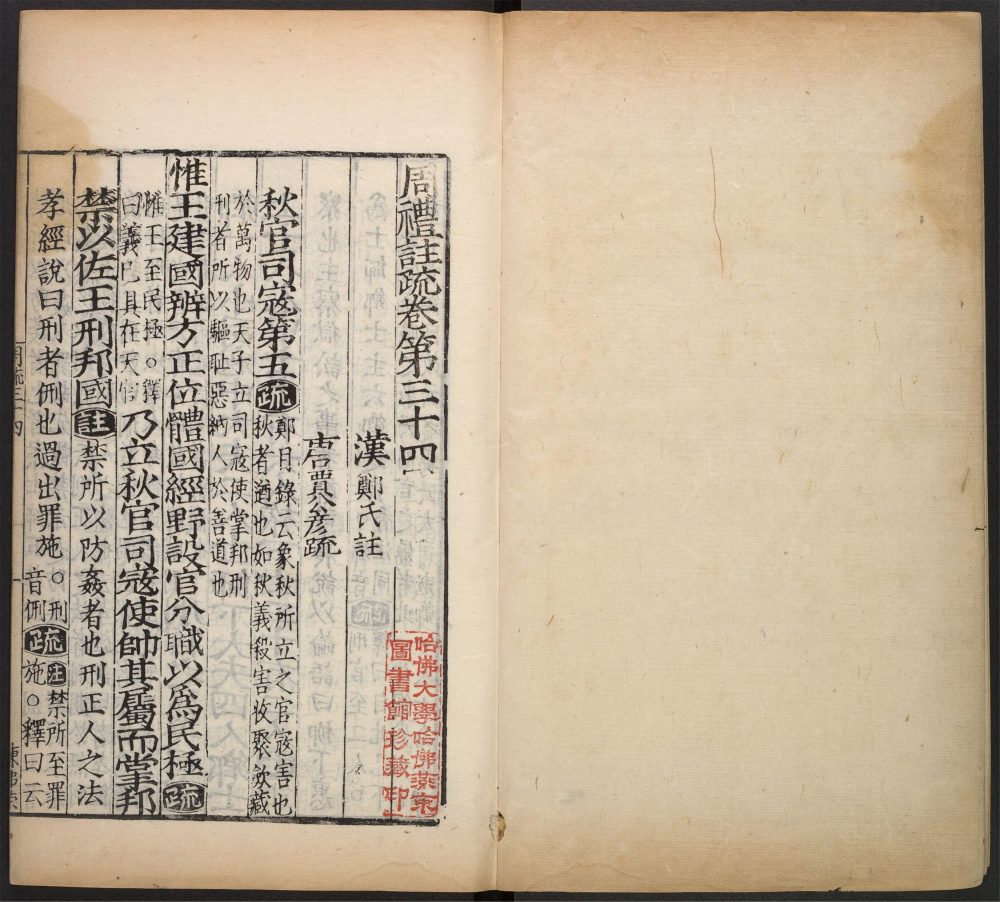 周禮註疏卷第三十四
漢鄭氏註
唐賈公彥疏
秋官司寇第五疏鄭目錄云象秋所立之官寇害也
秋者遒也如秋義殺害收聚斂藏
於萬物也天子立司寇使掌邦刑
刑者所以驅恥惡納人於善道也
惟王建國辨方正位體國經野設官分職以爲民極疏
惟王至民極○釋
曰義已具在天官
乃立秋官司寇使帥其屬而掌邦
禁以佐王刑邦國註禁所以防姦者也刑正人之法
孝經說曰刑者侀也過出罪施○刑
音侀
疏注禁所至罪
施○釋曰云
哈佛大學哈佛燕京
圖書館珍藏印